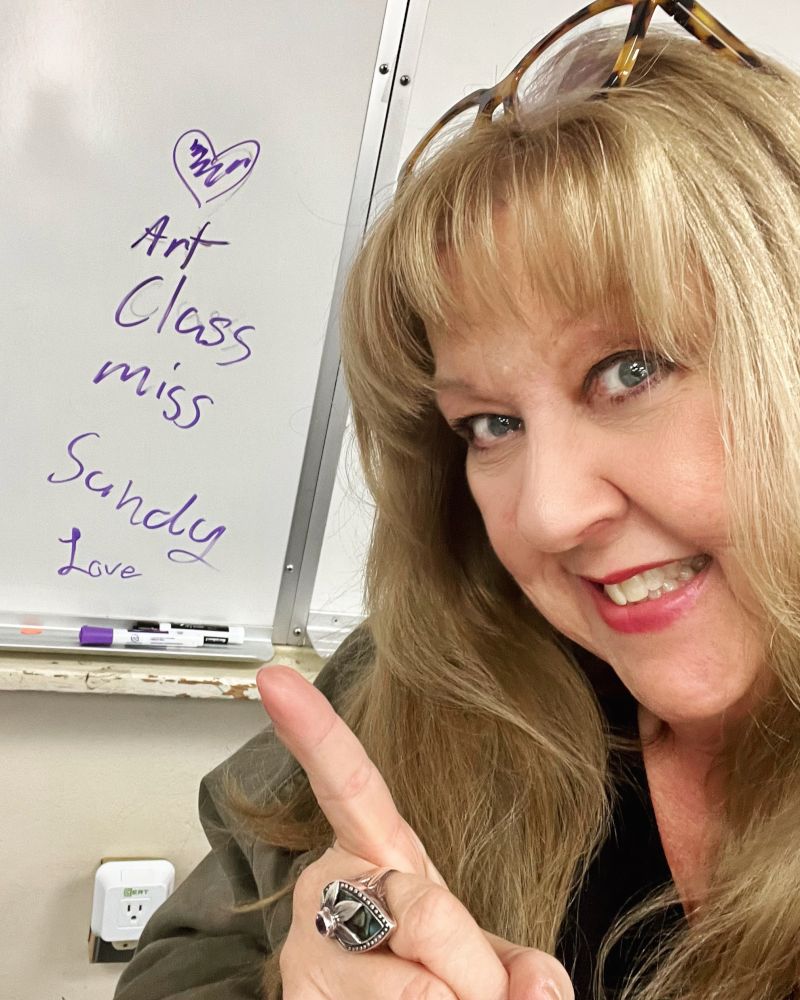 Art
Class
miss
Sandy
Love